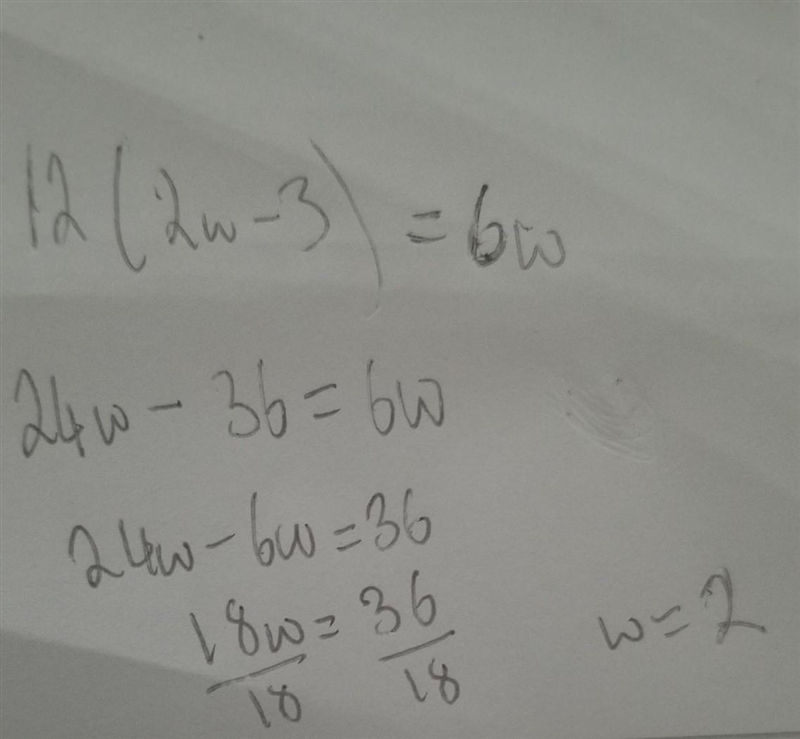 12(2w-3) = 6w
24w - 36 = 6w
24w - 6w = 36
18w/18 = 36/18
w = 2